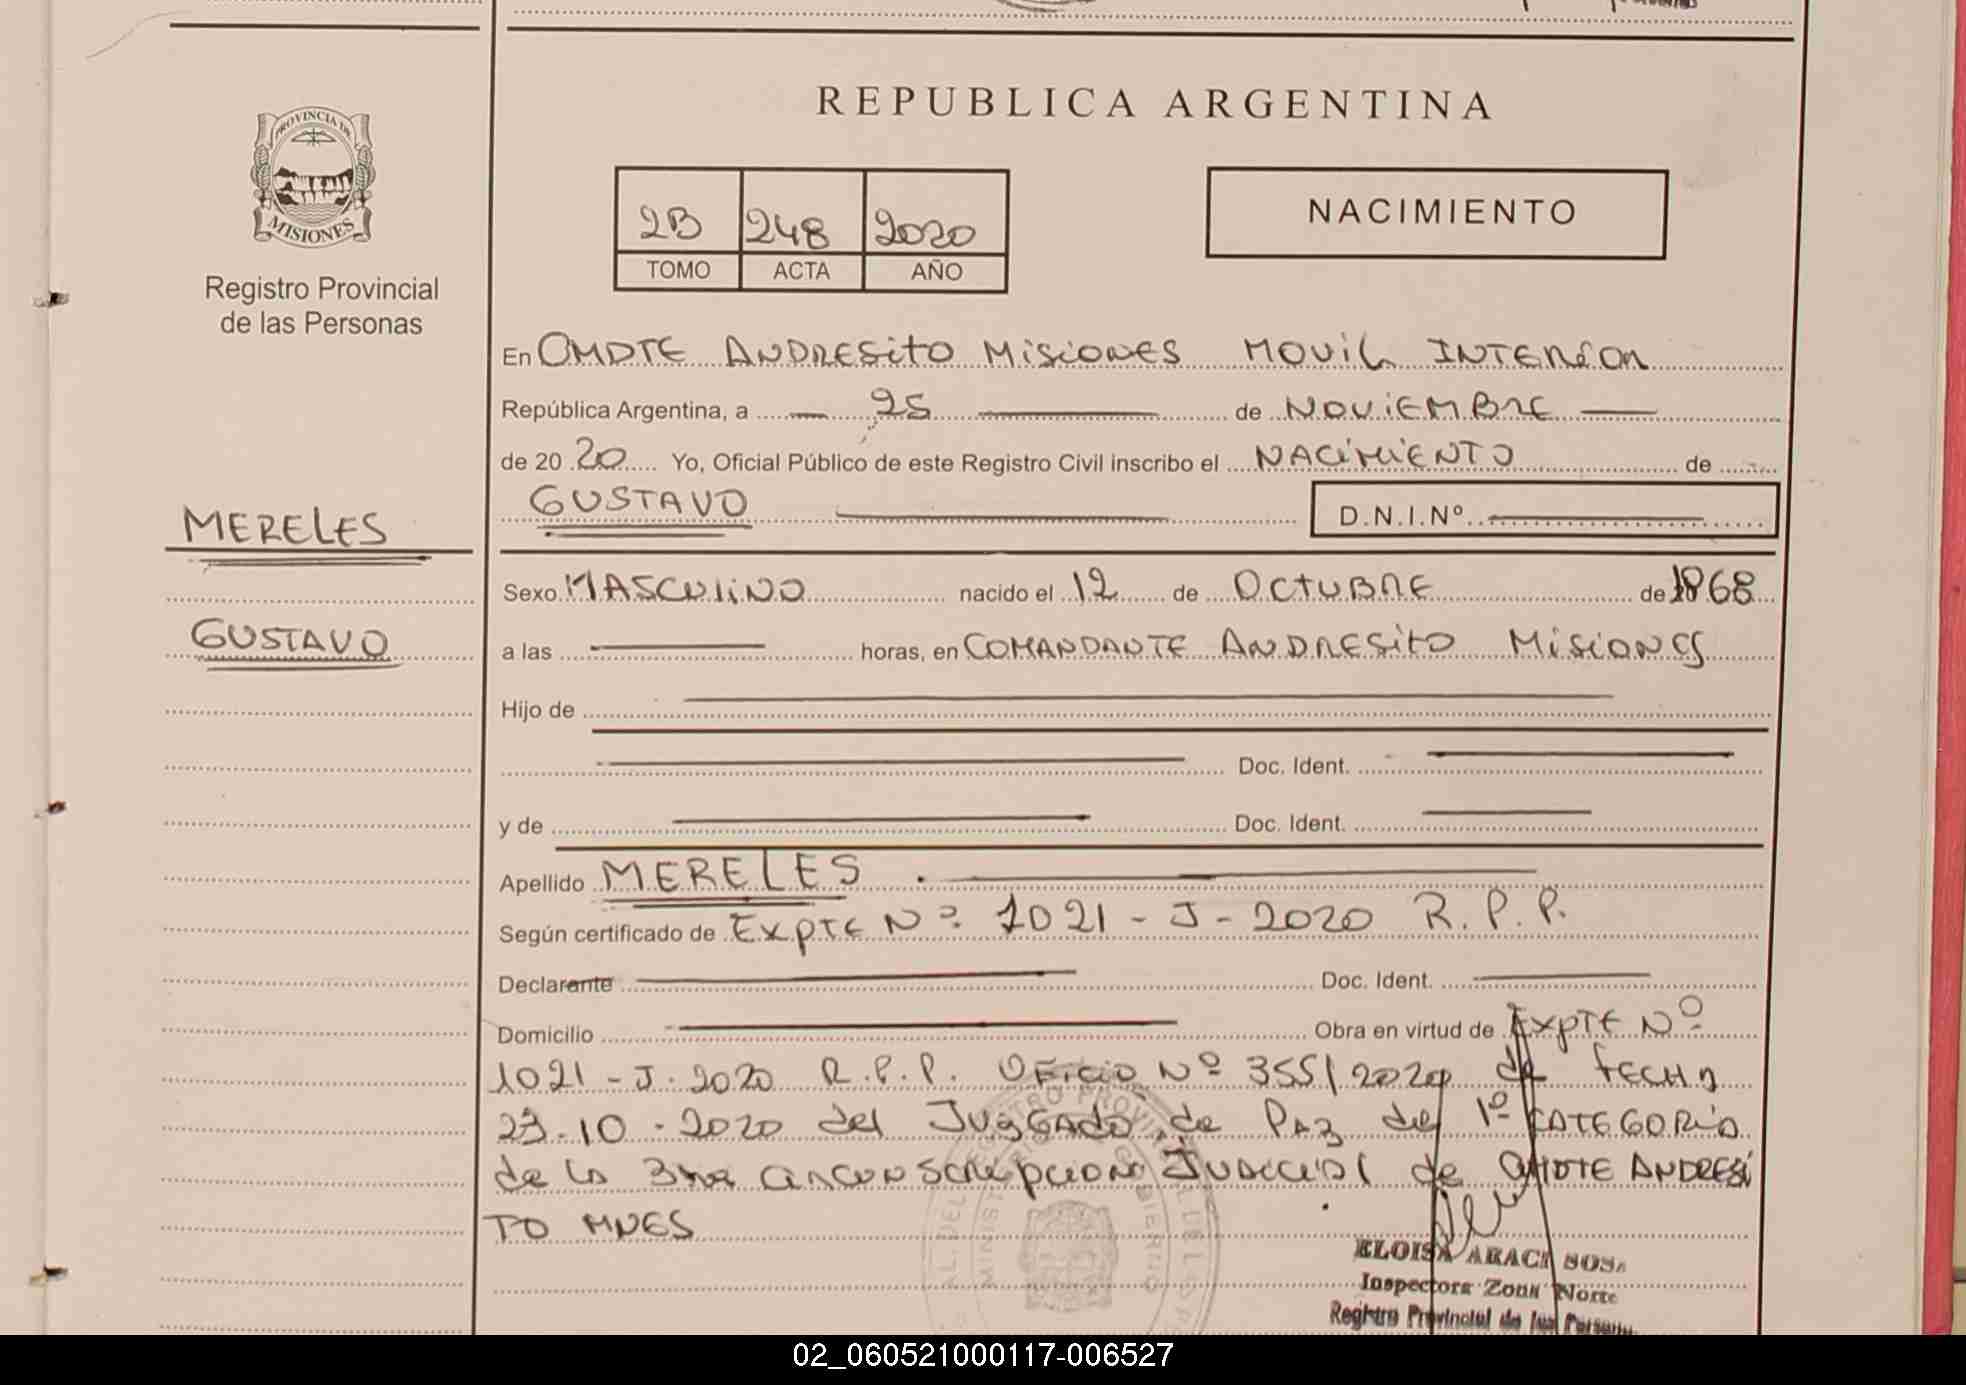 REPUBLICA ARGENTINA
PROVINCIA DE
MISIONES
Registro Provincial
de las Personas
2B 248 2020
TOMO ACTA AÑO
NACIMIENTO
En CMDTE ANDRESITO MISIONES MOVIL INTERIOR
República Argentina, a 25 de NOVIEMBRE
de 20 20 Yo, Oficial Público de este Registro Civil inscribo el NACIMIENTO de
GUSTAVO D.N.I.Nº
MERELES
GUSTAVO
Sexo MASCULINO nacido el 12 de OCTUBRE de 1868
a las horas, en COMANDANTE ANDRESITO MISIONES
Hijo de
Doc. Ident.
y de Doc. Ident.
Apellido MERELES
Según certificado de EXPTE Nº 1021 - J - 2020 R. P. P.
Declarante Doc. Ident.
Domicilio Obra en virtud de EXPTE Nº
1021 - J. 2020 R. P. P. OFICIO Nº 355/2020 de FECHA
23.10.2020 del JUZGADO de PAZ de 1º CATEGORIA
de la 3ra CIRCUNSCRIPCION JUDICIAL de CMDTE ANDRESI
TO MNES
ELOISA ARACI SOSA
Inspectora Zona Norte
Registro Provincial de las Personas
02_060521000117-006527